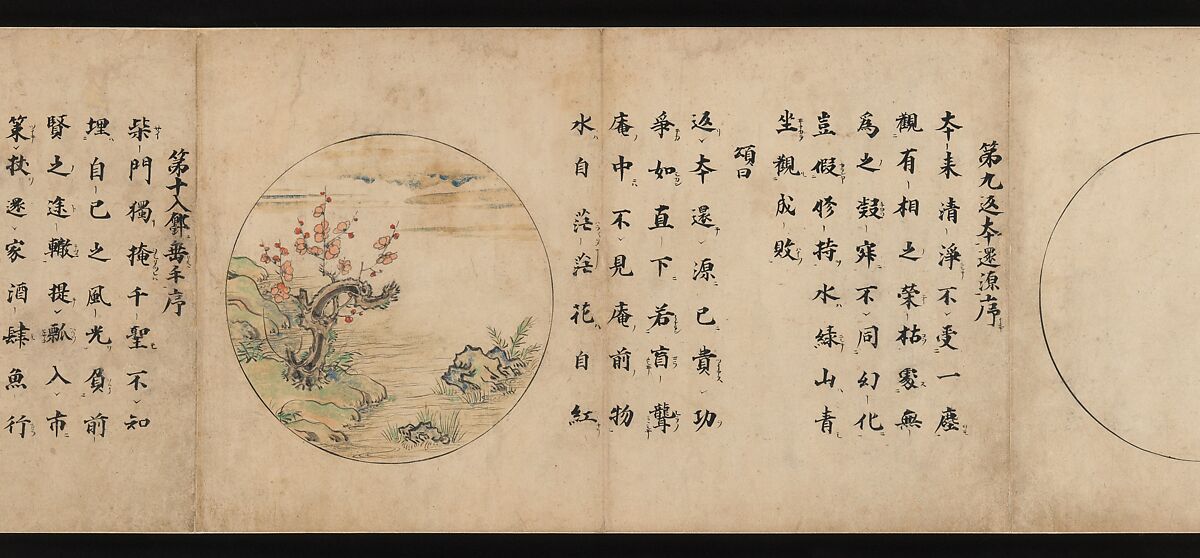 第九返本還源序
本来清淨不受一塵
觀有相之榮枯處無
為之凝寂不同幻化
豈假修持水緑山青
坐觀成敗
頌曰
返本還源已費功
爭如直下若盲聾
庵中不見庵前物
水自茫茫花自紅
第十入鄽垂手序
柴門獨掩千聖不知
埋自己之風光負前
賢之途轍提瓢入市
策杖還家酒肆魚行